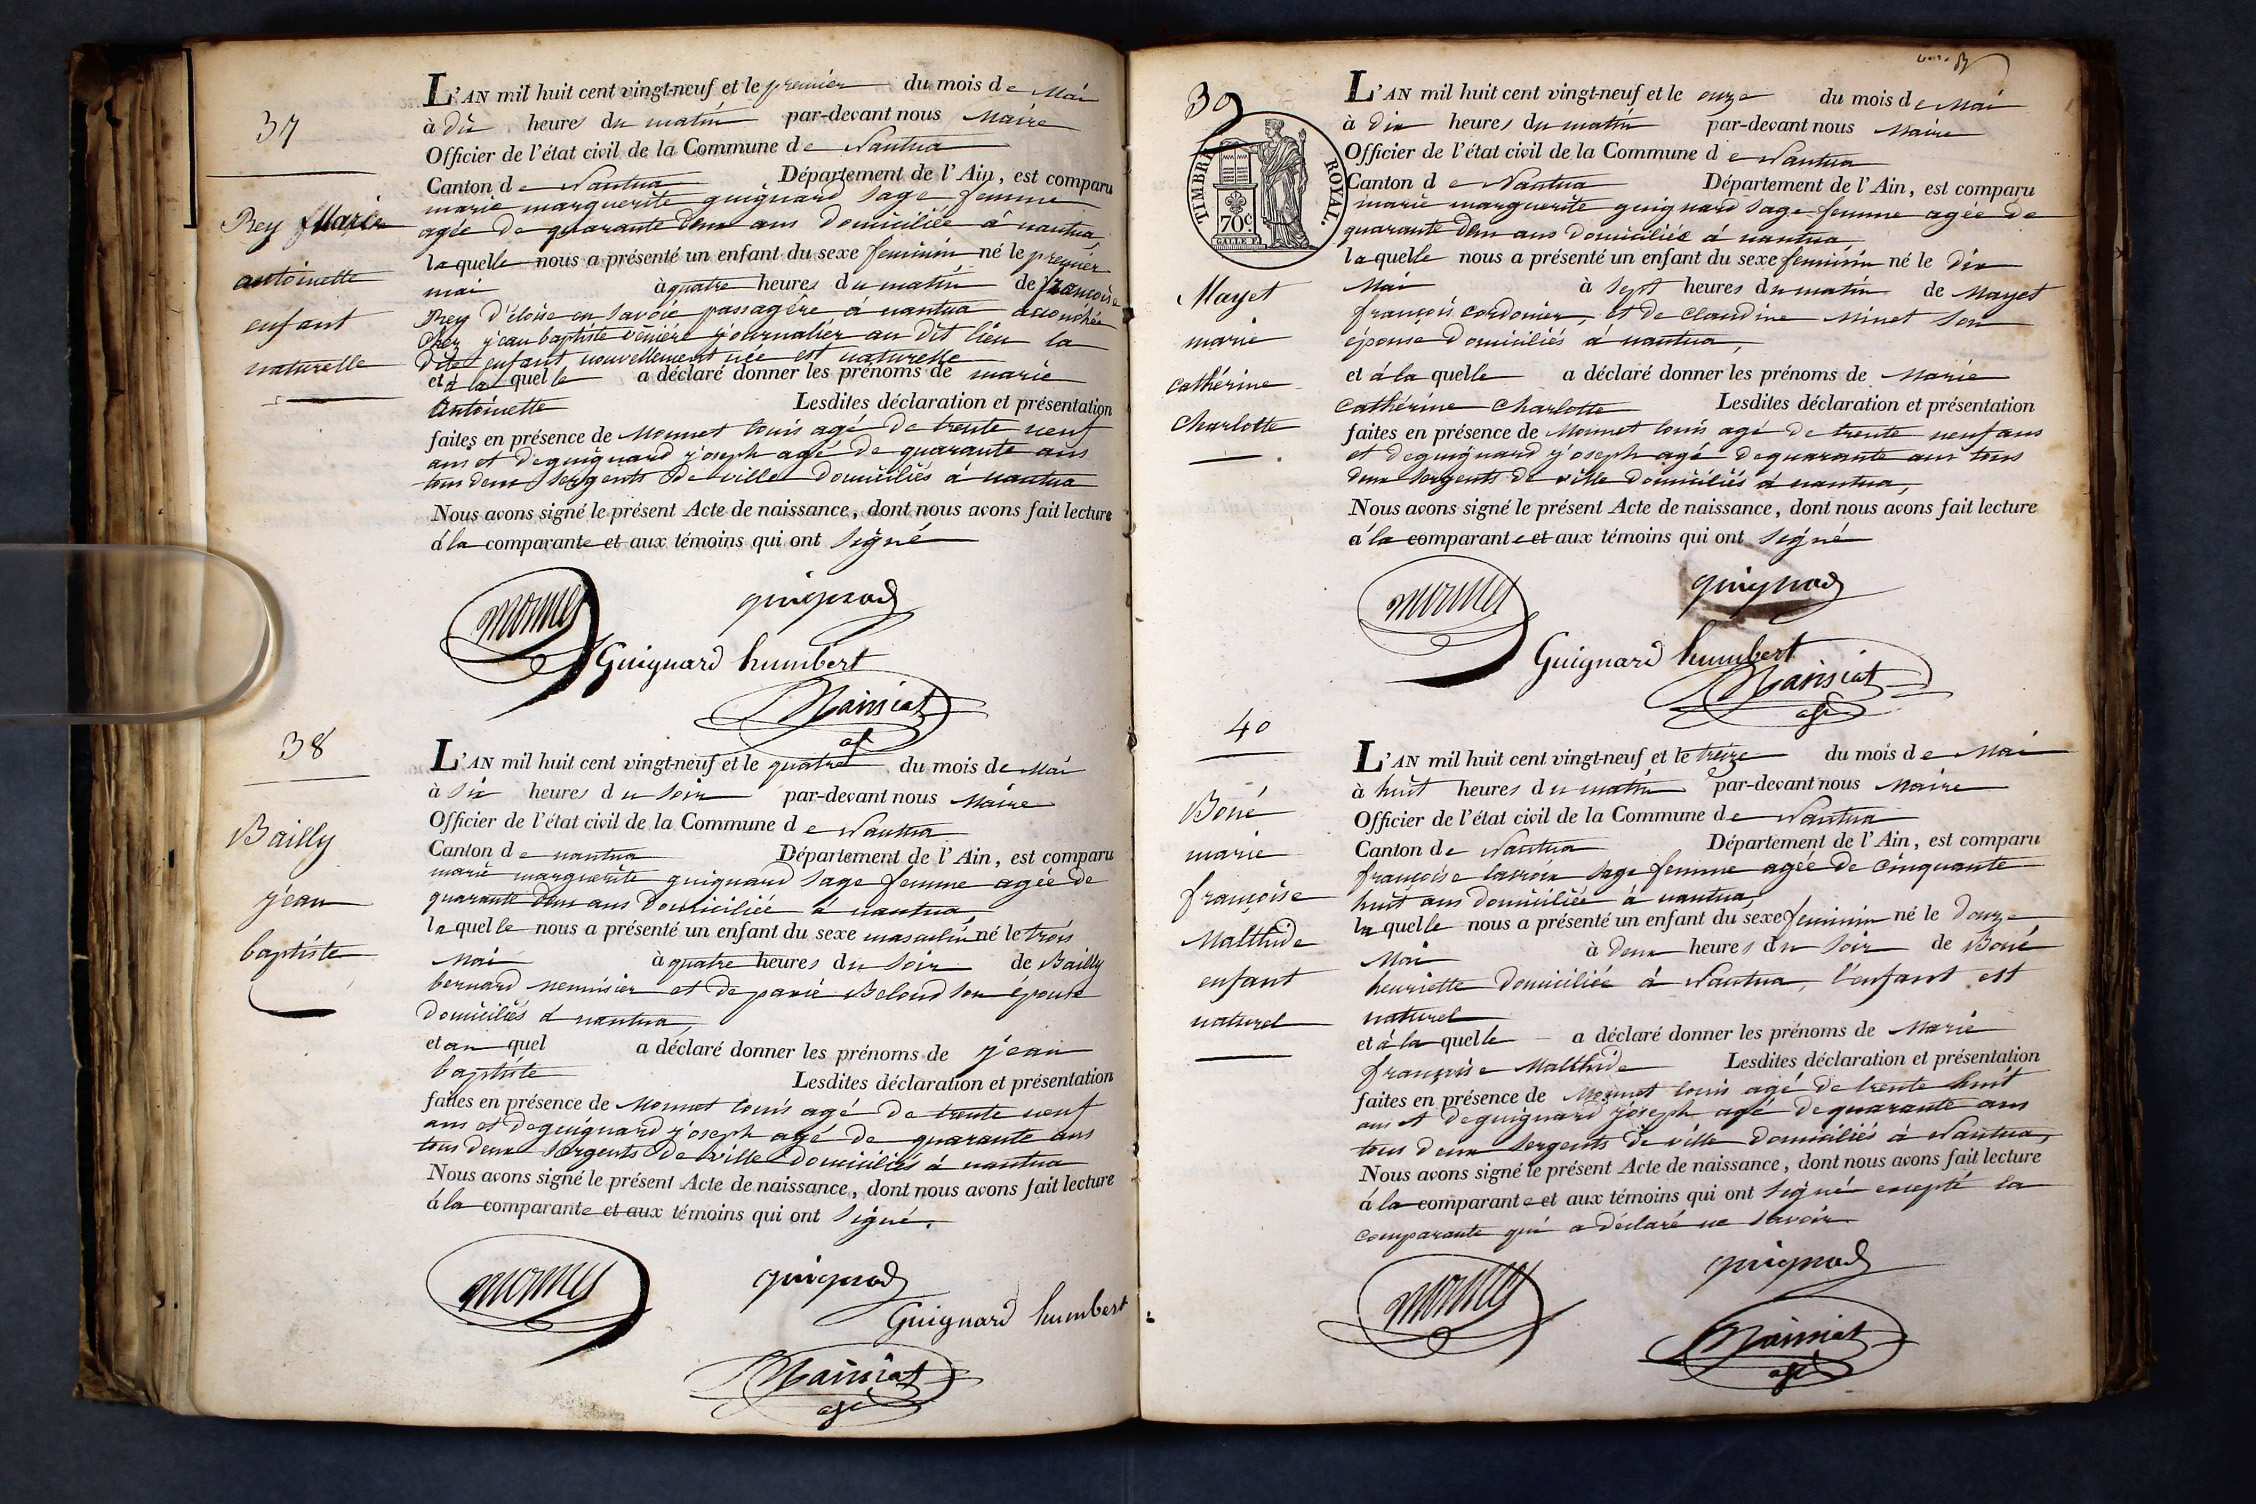 37
Rey Marie
antoinette
enfant
naturelle
L'AN mil huit cent vingt-neuf et le premier du mois de Mai
à dix heures du matin par-devant nous Maire
Officier de l'état civil de la Commune de Nantua
Canton de Nantua Département de l'Ain, est comparu
marie marguerite guignard sage femme
agée de quarante deux ans domiciliée à nantua,
laquelle nous a présenté un enfant du sexe feminin né le premier
mai à quatre heures du matin de françoise
Rey d'éloise en Savoie passagère à nantua accouchée
chez jean baptiste journalier au dit lieu la
dite enfant nouvellement née est naturelle
et à laquelle a déclaré donner les prénoms de marie
Antoinette Lesdites déclaration et présentation
faites en présence de Monnet louis agé de trente neuf
ans et de guignard joseph agé de quarante ans
tous deux sergents de ville domiciliés à nantua
Nous avons signé le présent Acte de naissance, dont nous avons fait lecture
à la comparante et aux témoins qui ont signé
monnet guignard
Guignard humbert
Mainiat
38
Bailly
jean
baptiste
L'AN mil huit cent vingt-neuf et le quatre du mois de Mai
à six heures du soir par-devant nous Maire
Officier de l'état civil de la Commune de Nantua
Canton de nantua Département de l'Ain, est comparu
marie marguerite guignard sage femme agée de
quarante deux ans domiciliée à nantua,
laquelle nous a présenté un enfant du sexe masculin né le trois
Mai à quatre heures du soir de Bailly
bernard menuisier et de son épouse
domiciliés à nantua,
et au quel a déclaré donner les prénoms de jean
baptiste Lesdites déclaration et présentation
faites en présence de Monnet louis agé de trente neuf
ans et de guignard joseph agé de quarante ans
tous deux sergents de ville domiciliés à nantua
Nous avons signé le présent Acte de naissance, dont nous avons fait lecture
à la comparante et aux témoins qui ont signé.
monnet guignard
Guignard humbert
Mainiat
39
TIMBRE ROYAL.
70c
Mayet
marie
cathérine
charlotte
L'AN mil huit cent vingt-neuf et le onze du mois de Mai
à dix heures du matin par-devant nous Maire
Officier de l'état civil de la Commune de Nantua
Canton de Nantua Département de l'Ain, est comparu
marie marguerite guignard sage femme agée de
quarante deux ans domiciliée à nantua,
laquelle nous a présenté un enfant du sexe feminin né le dix
Mai à sept heures du matin de Mayet
françois cordonier, et de claudine Minet son
épouse domiciliés à nantua,
et à la quelle a déclaré donner les prénoms de Marie
Cathérine Charlotte Lesdites déclaration et présentation
faites en présence de Monnet louis agé de trente neuf ans
et de guignard joseph agé de quarante ans tous
deux sergents de ville domiciliés à nantua,
Nous avons signé le présent Acte de naissance, dont nous avons fait lecture
à la comparante et aux témoins qui ont signé
monnet guignard
Guignard humbert
Mainiat
40
Boué
marie
françoise
Malthide
enfant
naturel
L'AN mil huit cent vingt-neuf et le treize du mois de Mai
à huit heures du matin par-devant nous Maire
Officier de l'état civil de la Commune de Nantua
Canton de Nantua Département de l'Ain, est comparu
françoise sage femme agée de cinquante
huit ans domiciliée à nantua,
laquelle nous a présenté un enfant du sexe feminin né le douze
Mai à deux heures du soir de Boué
henriette domiciliée à Nantua, l'enfant est
naturel
et à la quelle a déclaré donner les prénoms de Marie
françoise Malthide Lesdites déclaration et présentation
faites en présence de Monnet louis agé de trente huit
ans et de guignard joseph agé de quarante ans
tous deux sergents de ville domiciliés à Nantua,
Nous avons signé le présent Acte de naissance, dont nous avons fait lecture
à la comparante et aux témoins qui ont signé excepté la
comparante qui a déclaré ne savoir
monnet guignard
Mainiat